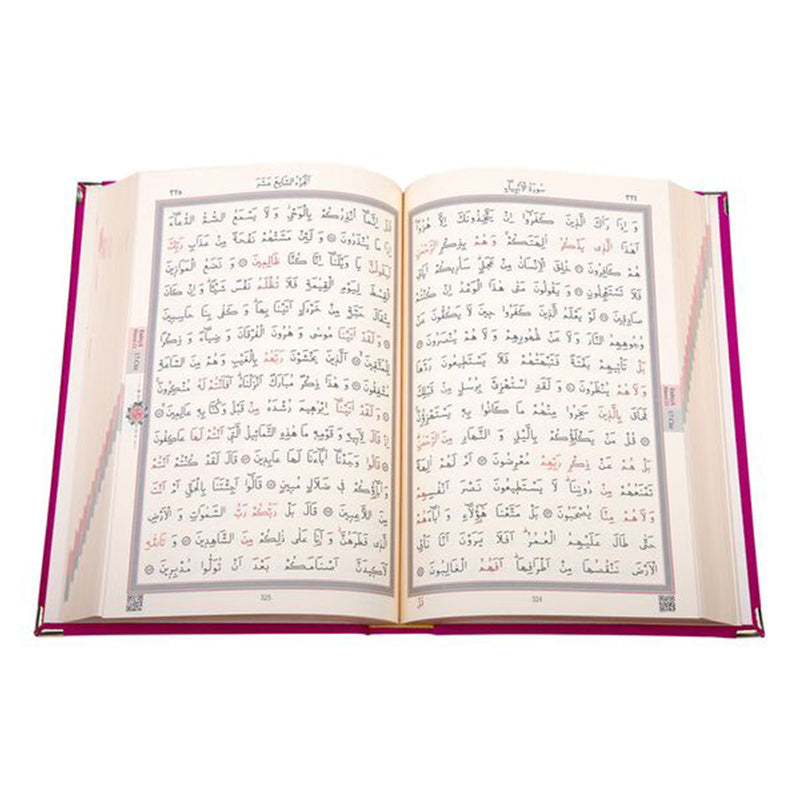 ٣٢٤
سورة الانبياء
وَ اِذَا رَاٰكَ الَّذ۪ينَ كَفَرُٓوا اِنْ يَتَّخِذُونَكَ اِلَّا هُزُوًا
اَهٰذَا الَّذ۪ي يَذْكُرُ اٰلِهَتَكُمْ وَ هُمْ بِذِكْرِ الرَّحْمٰنِ
هُمْ كَافِرُونَ خُلِقَ الْاِنْسَانُ مِنْ عَجَلٍ سَاُر۪يكُمْ اٰيَات۪ي
فَلَا تَسْتَعْجِلُونِ وَ يَقُولُونَ مَتٰى هٰذَا الْوَعْدُ اِنْ كُنْتُمْ
صَادِق۪ينَ لَوْ يَعْلَمُ الَّذ۪ينَ كَفَرُوا ح۪ينَ لَا يَكُفُّونَ عَنْ
وُجُوهِهِمُ النَّارَ وَ لَا عَنْ ظُهُورِهِمْ وَ لَا هُمْ يُنْصَرُونَ
بَلْ تَاْت۪يهِمْ بَغْتَةً فَتَبْهَتُهُمْ فَلَا يَسْتَط۪يعُونَ رَدَّهَا
وَ لَا هُمْ يُنْظَرُونَ وَ لَقَدِ اسْتُهْزِئَ بِرُسُلٍ مِنْ قَبْلِكَ
فَحَاقَ بِالَّذ۪ينَ سَخِرُوا مِنْهُمْ مَا كَانُوا بِه۪ يَسْتَهْزِؤُ۫نَ
قُلْ مَنْ يَكْلَؤُ۬كُمْ بِالَّيْلِ وَ النَّهَارِ مِنَ الرَّحْمٰنِ
بَلْ هُمْ عَنْ ذِكْرِ رَبِّهِمْ مُعْرِضُونَ اَمْ لَهُمْ اٰلِهَةٌ
تَمْنَعُهُمْ مِنْ دُونِنَا لَا يَسْتَط۪يعُونَ نَصْرَ اَنْفُسِهِمْ
وَ لَا هُمْ مِنَّا يُصْحَبُونَ بَلْ مَتَّعْنَا هٰٓؤُ۬لَٓاءِ وَ اٰبَٓاءَهُمْ
حَتّٰى طَالَ عَلَيْهِمُ الْعُمُرُ اَفَلَا يَرَوْنَ اَنَّا نَاْتِي
الْاَرْضَ نَنْقُصُهَا مِنْ اَطْرَافِهَا اَفَهُمُ الْغَالِبُونَ
324
قُلْ
الجزء السابع عشر
٣٢٥
قُلْ اِنَّمَٓا اُنْذِرُكُمْ بِالْوَحْيِ وَ لَا يَسْمَعُ الصُّمُّ الدُّعَٓاءَ
اِذَا مَا يُنْذَرُونَ وَ لَئِنْ مَسَّتْهُمْ نَفْحَةٌ مِنْ عَذَابِ رَبِّكَ
لَيَقُولُنَّ يَا وَيْلَنَٓا اِنَّا كُنَّا ظَالِم۪ينَ وَ نَضَعُ الْمَوَاز۪ينَ
الْقِسْطَ لِيَوْمِ الْقِيٰمَةِ فَلَا تُظْلَمُ نَفْسٌ شَيْـًٔا وَ اِنْ كَانَ
مِثْقَالَ حَبَّةٍ مِنْ خَرْدَلٍ اَتَيْنَا بِهَا وَ كَفٰى بِنَا حَاسِب۪ينَ
وَ لَقَدْ اٰتَيْنَا مُوسٰى وَ هٰرُونَ الْفُرْقَانَ وَ ضِيَٓاءً وَ ذِكْرًا
لِلْمُتَّق۪ينَ اَلَّذ۪ينَ يَخْشَوْنَ رَبَّهُمْ بِالْغَيْبِ وَ هُمْ مِنَ السَّاعَةِ
مُشْفِقُونَ وَ هٰذَا ذِكْرٌ مُبَارَكٌ اَنْزَلْنَاهُ اَفَاَنْتُمْ لَهُ مُنْكِرُونَ
وَ لَقَدْ اٰتَيْنَٓا اِبْرٰه۪يمَ رُشْدَهُ مِنْ قَبْلُ وَ كُنَّا بِه۪ عَالِم۪ينَ
اِذْ قَالَ لِاَب۪يهِ وَ قَوْمِه۪ مَا هٰذِهِ التَّمَاث۪يلُ الَّت۪ٓي اَنْتُمْ لَهَا عَاكِفُونَ
قَالُوا وَجَدْنَٓا اٰبَٓاءَنَا لَهَا عَابِد۪ينَ قَالَ لَقَدْ كُنْتُمْ اَنْتُمْ
وَ اٰبَٓاؤُ۬كُمْ ف۪ي ضَلَالٍ مُب۪ينٍ قَالُٓوا اَجِئْتَنَا بِالْحَقِّ اَمْ اَنْتَ
مِنَ اللَّاعِب۪ينَ قَالَ بَلْ رَبُّكُمْ رَبُّ السَّمٰوَاتِ وَ الْاَرْضِ
الَّذ۪ي فَطَرَهُنَّ وَ اَنَا عَلٰى ذٰلِكُمْ مِنَ الشَّاهِد۪ينَ وَ تَاللّٰهِ
لَاَك۪يدَنَّ اَصْنَامَكُمْ بَعْدَ اَنْ تُوَلُّوا مُدْبِر۪ينَ
325